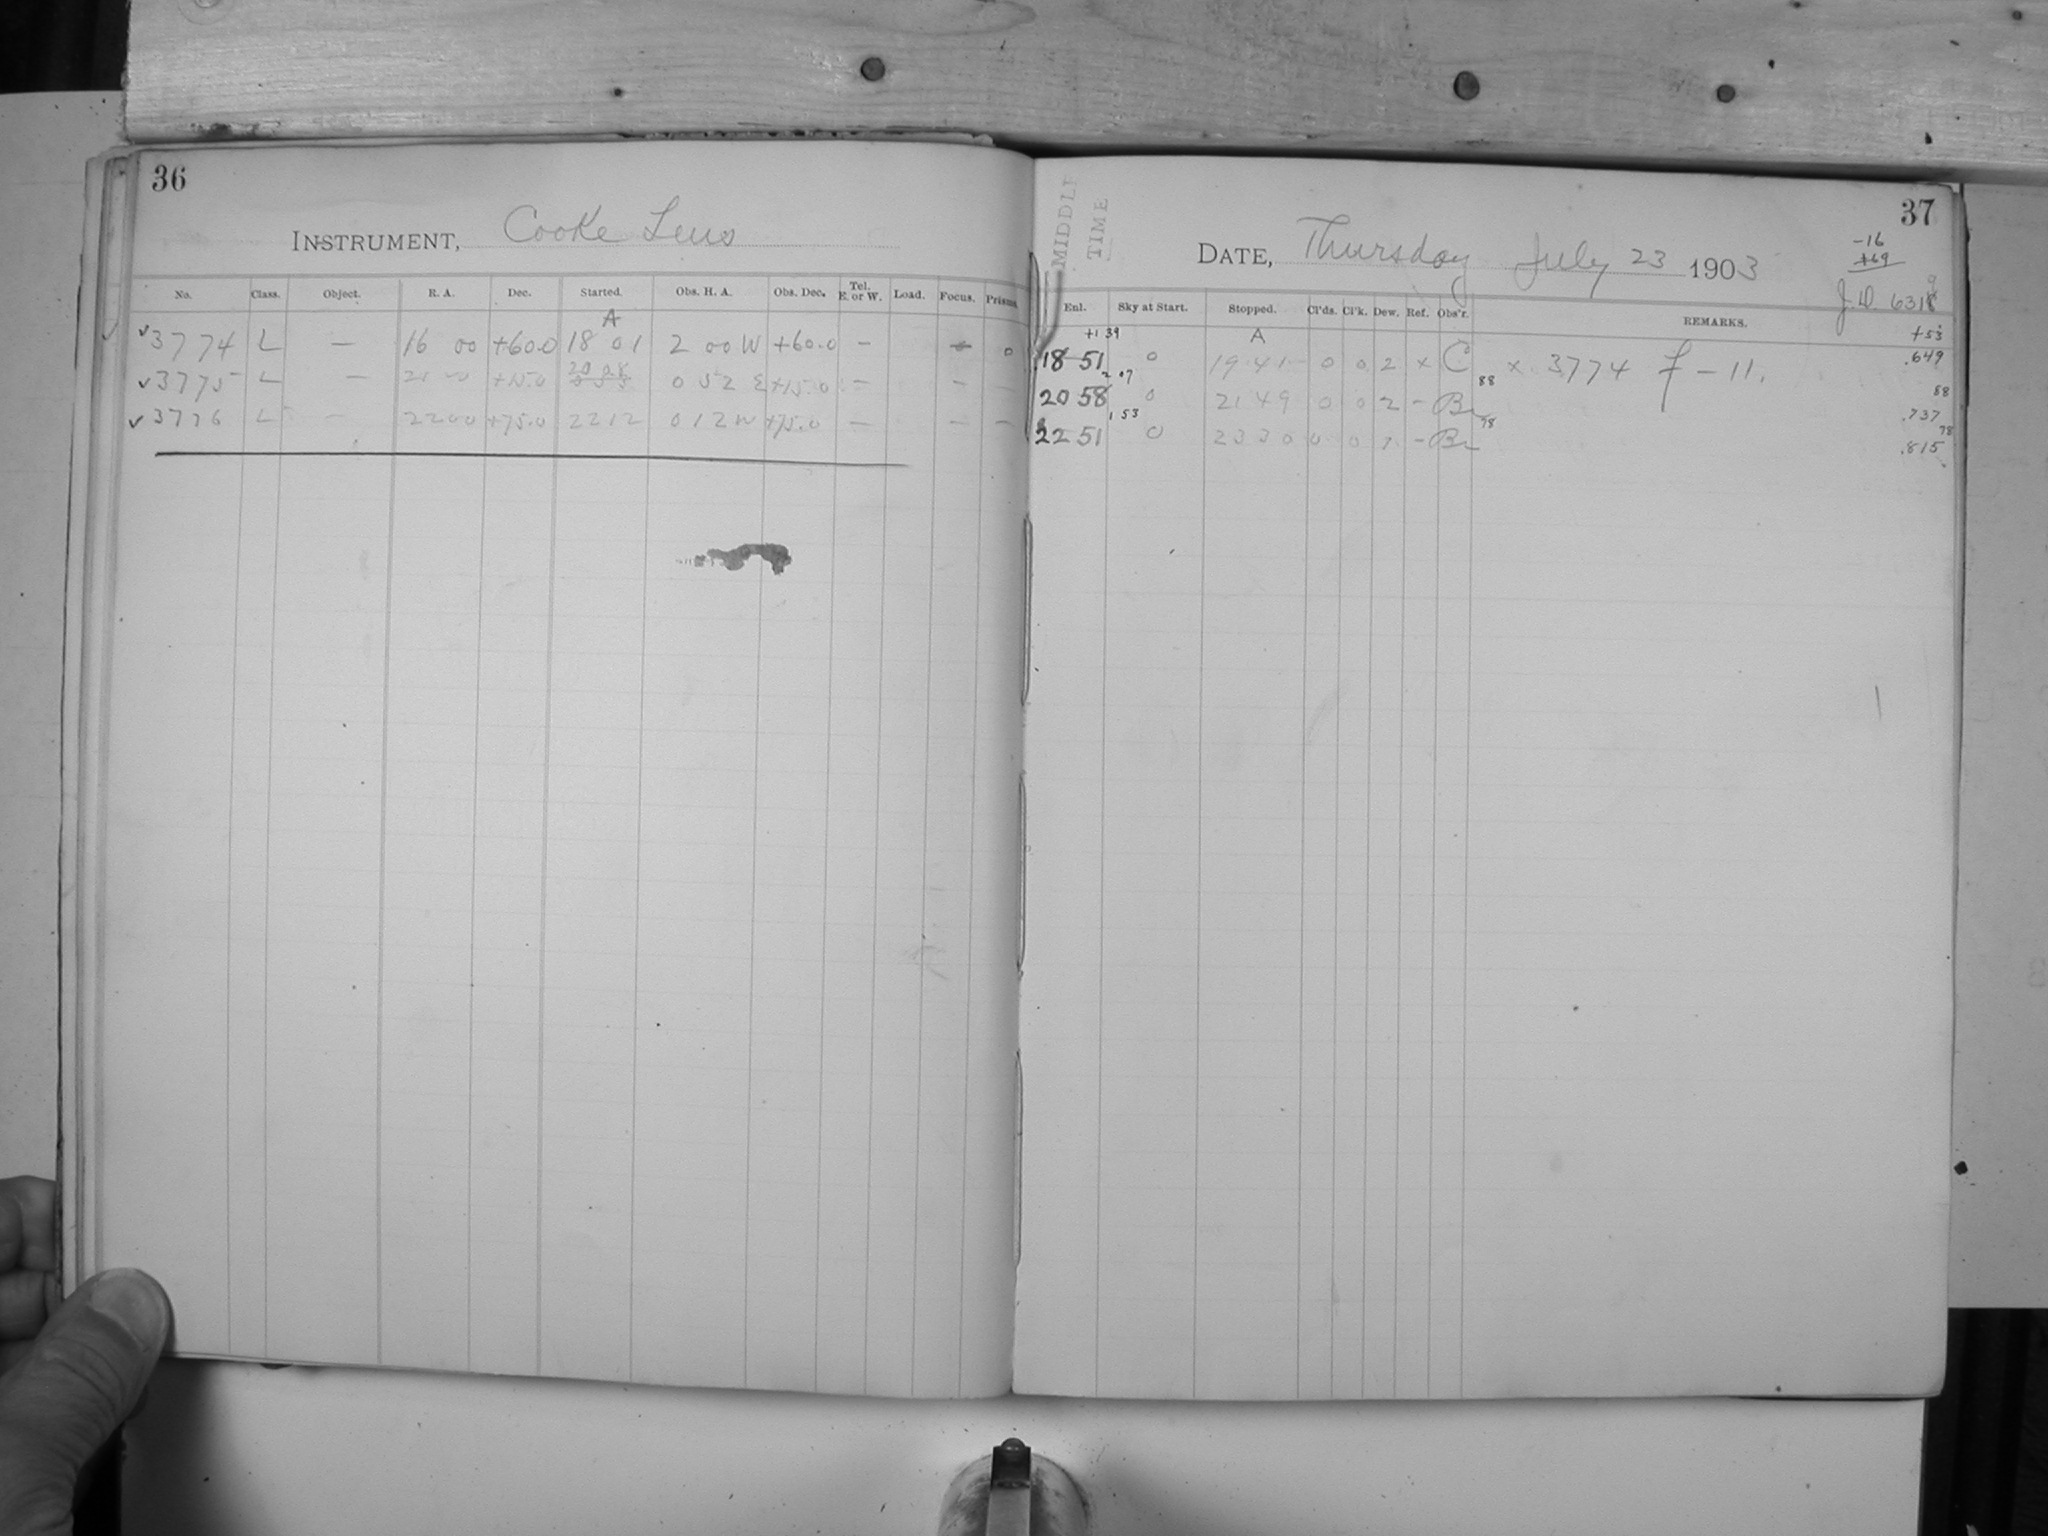 36
INSTRUMENT, Cooke Lens
No. Class. Object. R. A. Dec. Started. Obs. H. A. Obs. Dec. Tel. E. or W. Load. Focus. Prisms.
A
✓ 3774 L — 16 00 +60.0 18 01 2 00 W +60.0 — 0
20 08
✓ 3775 L — 21 00 +15.0 0 52 E +15.0 — — —
✓ 3776 L — 22 00 +75.0 22 12 0 12 W +75.0 — — —
37
MIDDLE TIME
DATE, Thursday July 23 1903
-16
+69
J.D. 6318
9
Enl. Sky at Start. Stopped. Cl'ds. Cl'k. Dew. Ref. Obs'r. REMARKS.
+1 39 A +53
18 51 0 19 41 0 0 2 x C x 3774 f - 11. .649
2 07 88 88
20 58 0 21 49 0 0 2 - Br .737
1 53 78 78
22 51 0 23 30 0 0 2 - Br .815